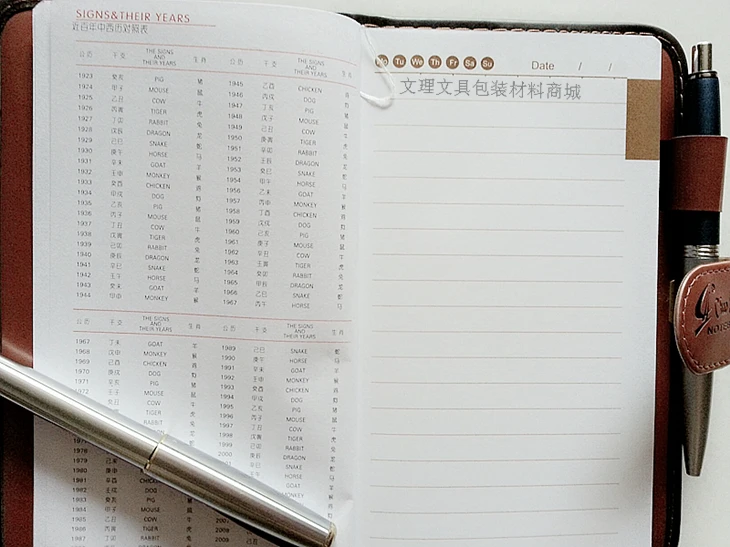 SIGNS&THEIR YEARS
近百年中西历对照表
公历 干支 THE SIGNS AND THEIR YEARS 生肖 公历 干支 THE SIGNS AND THEIR YEARS 生肖
1923 癸亥 PIG 猪 1945 乙酉 CHICKEN 鸡
1924 甲子 MOUSE 鼠 1946 丙戌 DOG 狗
1925 乙丑 COW 牛 1947 丁亥 PIG 猪
1926 丙寅 TIGER 虎 1948 戊子 MOUSE 鼠
1927 丁卯 RABBIT 兔 1949 己丑 COW 牛
1928 戊辰 DRAGON 龙 1950 庚寅 TIGER 虎
1929 己巳 SNAKE 蛇 1951 辛卯 RABBIT 兔
1930 庚午 HORSE 马 1952 壬辰 DRAGON 龙
1931 辛未 GOAT 羊 1953 癸巳 SNAKE 蛇
1932 壬申 MONKEY 猴 1954 甲午 HORSE 马
1933 癸酉 CHICKEN 鸡 1956 乙未 GOAT 羊
1934 甲戌 DOG 狗 1957 丙申 MONKEY 猴
1935 乙亥 PIG 猪 1958 丁酉 CHICKEN 鸡
1936 丙子 MOUSE 鼠 1959 戊戌 DOG 狗
1937 丁丑 COW 牛 1960 己亥 PIG 猪
1938 戊寅 TIGER 虎 1961 庚子 MOUSE 鼠
1939 己卯 RABBIT 兔 1962 辛丑 COW 牛
1940 庚辰 DRAGON 龙 1963 壬寅 TIGER 虎
1941 辛巳 SNAKE 蛇 1964 癸卯 RABBIT 兔
1942 壬午 HORSE 马 1965 甲辰 DRAGON 龙
1943 癸未 GOAT 羊 1966 乙巳 SNAKE 蛇
1944 甲申 MONKEY 猴 1967 丙午 HORSE 马
公历 干支 THE SIGNS AND THEIR YEARS 生肖 公历 干支 THE SIGNS AND THEIR YEARS 生肖
1967 丁未 GOAT 羊 1989 己巳 SNAKE 蛇
1968 戊申 MONKEY 猴 1990 庚午 HORSE 马
1969 己酉 CHICKEN 鸡 1991 辛未 GOAT 羊
1970 庚戌 DOG 狗 1992 壬申 MONKEY 猴
1971 辛亥 PIG 猪 1993 癸酉 CHICKEN 鸡
1972 壬子 MOUSE 鼠 1994 甲戌 DOG 狗
癸丑 COW 牛 1995 乙亥 PIG 猪
TIGER 虎 1996 丙子 MOUSE 鼠
RABBIT 兔 1997 丁丑 COW 牛
龙 1998 戊寅 TIGER 虎
1999 己卯 RABBIT 兔
2000 庚辰 DRAGON 龙
SNAKE 蛇
1980 庚申 HORSE 马
1981 辛酉 CHICKEN GOAT 羊
1982 壬戌 DOG MONKEY 猴
1983 癸亥 PIG 猪
1984 甲子 MOUSE 鼠
1985 乙丑 COW 牛
1986 丙寅 TIGER 虎
1987 丁卯 RABBIT 兔 2009
Mo Tu We Th Fr Sa Su Date / /
文理文具包装材料商城